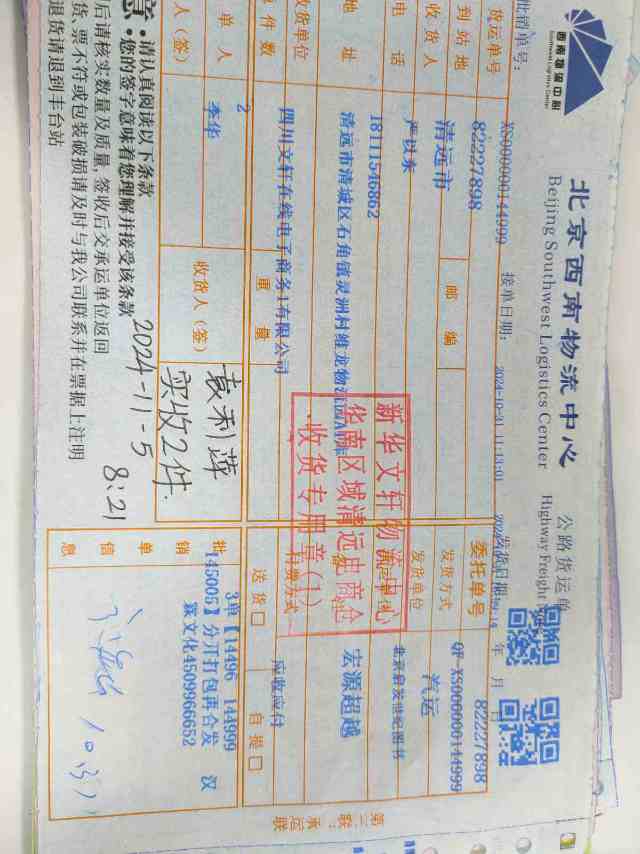 西南物流中心
Southwest Logistics Center
北京西南物流中心
Beijing Southwest Logistics Center
公路货运单
Highway Freight
批销单号: XS000000144999 接单日期: 2024-10-31 11:13:01 发货日期 年 月 日
货运单号 82227898 委托单号 82227898
QY-XS000000144999
到站地 清远市 邮编 发货方式 汽运
收货人 严以东 发货单位 北京启发世纪图书
电话 18111546862
地址 清远市清城区石角镇灵洲村维龙物流园A 宏源超越
收货单位 四川文轩在线电子商务1有限公司 付款方式 应收应付
件数 2 重量 送货□ 自提□
单人 李华 收货人(签) 袁利萍
实收2件
2024-11-5 8:21
人(签)
批销单信息
3单【14496 144999
145003】分开打包再合发 汉
霖文化4509966652
10.31
新华文轩物流中心
华南区域清远电商仓
收货专用章(1)
意 • 请认真阅读以下条款
• 您的签字意味着您理解并接受该条款
后请核实数量及质量,签收后交承运单位返回
货,票不符或包装破损请及时与我公司联系并在票据上注明
退货请退到丰台站
第二联:承运联